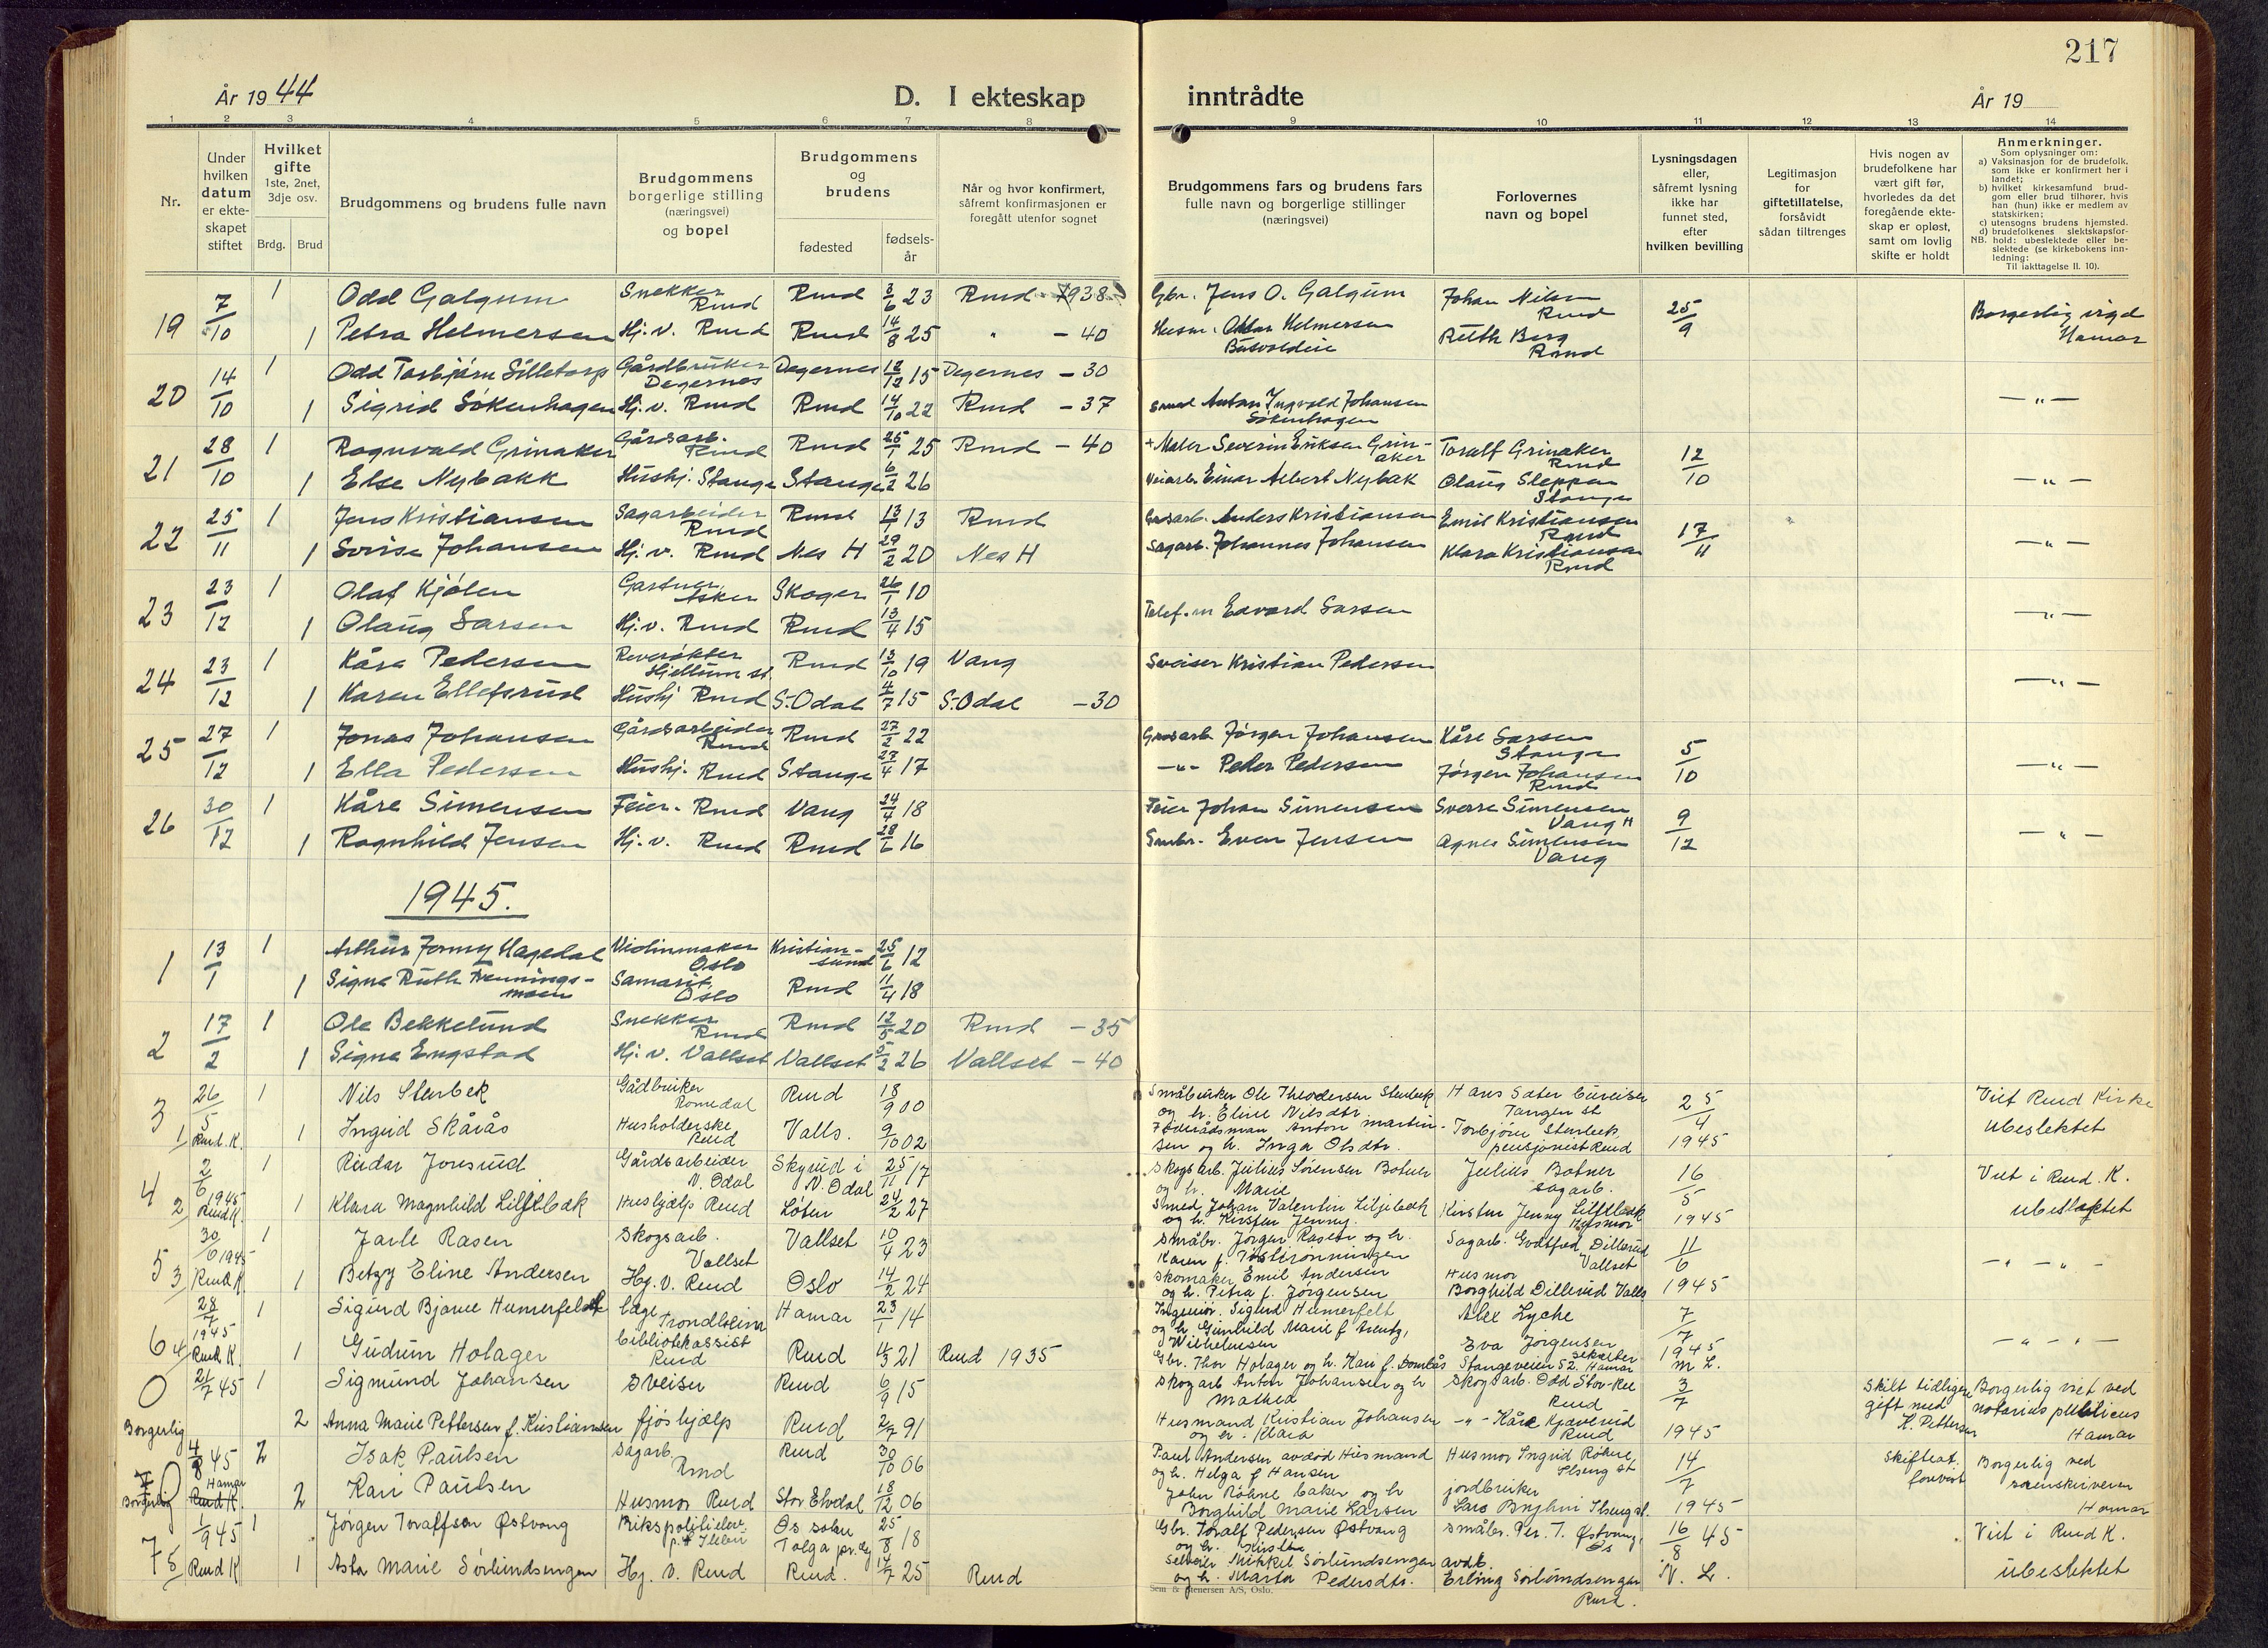 217
År 1944
D. I ekteskap inntrådte
År 19
1 2 3 4 5 6 7 8 9 10 11 12 13 14
Nr.
Under hvilken datum er ekteskapet stiftet
Hvilket gifte 1ste, 2net, 3dje osv.
Brdg. Brud
Brudgommens og brudens fulle navn
Brudgommens borgerlige stilling (næringsvei) og bopel
Brudgommens og brudens
fødested
fødsels-år
Når og hvor konfirmert, såfremt konfirmasjonen er foregått utenfor sognet
Brudgommens fars og brudens fars fulle navn og borgerlige stillinger (næringsvei)
Forlovernes navn og bopel
Lysningsdagen eller, såfremt lysning ikke har funnet sted, efter hvilken bevilling
Legitimasjon for giftetillatelse, forsåvidt sådan tiltrenges
Hvis nogen av brudefolkene har vært gift før, hvorledes da det foregående ekteskap er opløst, samt om lovlig skifte er holdt
Anmerkninger.
Som oplysninger om:
a) Vaksinasjon for de brudefolk, som ikke er konfirmert her i landet;
b) hvilket kirkesamfund brudgom eller brud tilhører, hvis han (hun) ikke er medlem av statskirken;
c) utensogns brudens hjemsted.
d) brudefolkenes slektskapsforhold: ubeslektede eller beslektede (se kirkebokens innledning:
NB.
Til iakttagelse II. 10).
19 7/10 1 Odd Galgum Snekker Rmd Rmd 3/6 23 Rmd 1938 Gbr. Jens O. Galgum Johan Nilsen Rmd 25/9 Borgerlig vigd Hamar
1 Petra Helmersen Hj. v. Rmd Rmd 14/8 25 " - 40 Husm. Helmersen Ruth Berg Romd
20 14/10 1 Odd Torbjørn Silletorp Gårdbruker Degernes Degernes 12/12 15 Degernes - 30
1 Sigrid Søkenhagen Hj. v. Rmd Rmd 14/10 22 Rmd - 37 Smed Anton Ingvald Johansen Søkenhagen - " -
21 28/10 1 Ragnvald Grinaker Gårdsarb. Rmd Rmd 25/1 25 Rmd - 40 + Maler Severin Eriksen Grinaker Toralf Grinaker Rmd 12/10
1 Else Nybakk Hushj. Stange Stange 6/2 26 Veiarb. Einar Albert Nybak Olaug Sleppen Stange - " -
22 25/11 1 Jens Kristiansen Sagarbeider Rmd Rmd 13/1 13 Rmd Grdsarb. Anders Kristiansen Emil Kristiansen Romd 17/11
1 Johansen Hj. v. Rmd Nes H 29/2 20 Nes H Sagarb. Johannes Johansen Klara Kristiansen Romd - " -
23 23/12 1 Olaf Kjølen Gartner Asker Skoger 26/1 10
1 Olaug Larsen Hj. v. Rmd Rmd 13/4 15 Telef.m Edvard Larsen - " -
24 23/12 1 Kåre Pedersen Reverøkter Hjellum st. Rmd 13/10 19 Vang Sveiser Kristian Pedersen
1 Karen Ellefsrud Hushj Rmd S. Odal 4/7 15 S. Odal - 30 - " -
25 27/12 1 Jonas Johansen Gårdsarbeider Rmd Rmd 27/2 22 Grdsarb Jørgen Johansen Kåre Larsen Stange 5/10
1 Ella Pedersen Hushj. Rmd Stange 27/4 17 - " - Peder Pedersen Jørgen Johansen Rmd - " -
26 30/12 1 Kåre Simensen Feier. Rmd Vang 24/4 18 Feier Johan Simensen Sverre Simensen Vang H 9/12
1 Ragnhild Jensen Hj. v. Rmd Rmd 28/6 16 Smbr. Even Jensen Agnes Simensen Vang - " -
1945.
1 13/1 1 Arthur Jonny Hagedal Violinmaker Oslo Kristiansund 25/6 12
1 Signe Ruth Henningsmoen Samarit. Oslo Rmd 11/4 18
2 17/2 1 Ole Bekkelund Snekker Rmd Rmd 12/5 20 Rmd - 35
1 Signe Engstad Hj. v. Vallset Vallset 5/2 26 Vallset - 40
3 26/5 1 Nils Stenbek Gådbruker Romedal Rmd 18/9 00 Småbruker Ole Theodersen Stenbek og h. Eline Nilsdtr. Hans Sater Tangen st 25/4 1945 Viet Rmd Kirke
1/ Rmd. K. 1 Ingrid Skårås Husholderske Rmd Valls. 9/10 02 Føderådsman Anton Martinsen og h. Inga Olsdtr. Torbjørn Stenbek pensjonist Rmd ubeslektet
4 2/6 1945 1 Reidar Jonsrud Gårdsarbeider N. Odal Skyrud i N. Odal 25/11 17 Skogsarb. Julius Sørensen Botner og h. Marie Julius Botner sagarb. 16/5 1945 Viet i Rmd. K.
2/ Rmd K. 1 Klara Magnhild Liljebæk Hushjælp Rmd Løten 24/2 27 Smed Johan Valentin Liljebæk og h. Kirsten Jenny. Kirsten Jenny Liljebæk Husmor ubeslæktet
5 30/6 1945 1 Jarle Rasen Skogsarb. Vallset Vallset 10/4 23 Småbr. Jørgen Rasen og h. Karen f. Sagarb. Godtfred Dillerud Vallset 11/6 1945
3/ Rmd K. 1 Betzy Eline Andersen Hj. v. Rmd Oslo 14/2 24 Skomaker Emil Andersen og h. Petra f. Jørgensen Husmor Borghild Dillerud Valls - " - " -
6 28/7 1945 1 Sigurd Bjarne Humerfelt læge Trondheim Hamar 23/1 14 Ingeniør Sigurd Humerfelt og h. Gunhild Marie f Wilhelmsen Alex Lyche 7/7 1945 M L.
4/ Rmd K. 1 Gudrun Holager bibliotekassist Rmd Rmd 11/3 21 Rmd 1935 Gbr. Thor Holager og h. Kari f. Dombås Eva Jørgensen Stangeveien 52. Hamar - " - " -
0 21/7 45 1 Sigmund Johansen Sveiser Rmd 6/9 15 Skogarb Anton Johansen og h Mathea Skogsarb. Odd Stor-Ree Rmd 3/7 1945 Skilt tidligere gift med K. Pettersen Borgerlig viet ved notarius publicus Hamar
Borgerlig 2 Anna Marie Pettersen f. Kristiansen fjøshjælp Rmd 2/7 91 Husmand Kristian Johansen og h. Klara - " - Kåre Kjæverud Rmd
0 4/8 45 2 Isak Paulsen Sagarb. Rmd Rmd 30/10 06 Paul Andersen avdød Husmand og h. Helga f Hansen Husmor Ingrid Røhne Ilseng st 14/7 1945 Skifteat. forevist Borgerlig ved sorenskriveren Hamar
Borgerlig Hamar Rmd K. 2 Kari Paulsen Husmor Rmd Stor Elvdal 18/12 06 John Røhne baker og h Borghild Marie Larsen jordbruker Lars Ilseng st.
7 1/9 45 1 Jørgen Toralfsen Østvang Rikspolitielev. p.t. Os sokn Tolga pr.gj 25/8 18 Gbr. Toralf Pedersen Østvang og h. Småbr. Per. T. Østvang, Os 16/8 45 N. L. Viet i Rmd K.
5/ Rmd K 1 Asta Marie Sørlundsengen Hj. v. Rmd Rmd. 14/7 25 Rmd Selveier Mikkel Sørlundsengen og h. Marta Pedersdtr. avdk. Erling Sørlundsengen Rmd. ubeslektet
Sem & Stenersen A/S, Oslo.